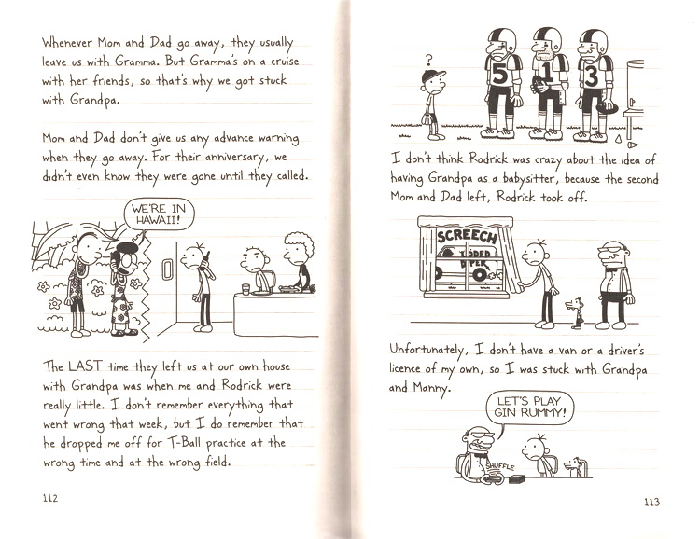 Whenever Mom and Dad go away, they usually
leave us with Gramma. But Gramma's on a cruise
with her friends, so that's why we got stuck
with Grandpa.
Mom and Dad don't give us any advance warning
when they go away. For their anniversary, we
didn't even know they were gone until they called.
WE'RE IN
HAWAII!
The LAST time they left us at our own house
with Grandpa was when me and Rodrick were
really little. I don't remember everything that
went wrong that week, but I do remember that
he dropped me off for T-Ball practice at the
wrong time and at the wrong field.
112
?
5 1 3
I don't think Rodrick was crazy about the idea of
having Grandpa as a babysitter, because the second
Mom and Dad left, Rodrick took off.
SCREECH
Unfortunately, I don't have a van or a driver's
licence of my own, so I was stuck with Grandpa
and Manny.
LET'S PLAY
GIN RUMMY!
SHUFFLE
113